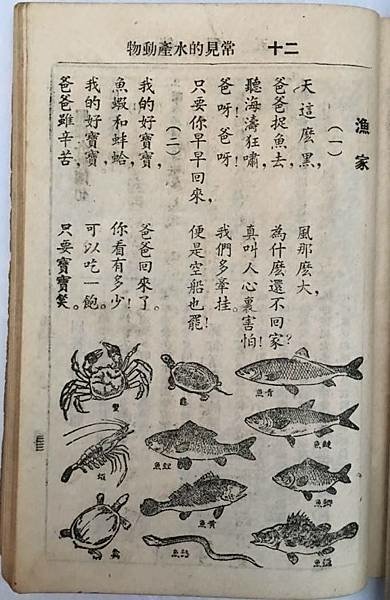 二十 常見的水產動物
漁家
(一)
天這麼黑, 風那麼大,
爸爸捉魚去, 為什麼還不回家?
聽海濤狂嘯, 真叫人心裏害怕!
爸呀!爸呀! 我們多牽挂。
只要你早早回來, 便是空船也罷!
(二)
我的好寶寶, 爸爸回來了。
魚蝦和蚌蛤, 你看有多少!
我的好寶寶, 可以吃一飽。
爸爸雖辛苦, 只要寶寶笑。
青魚
龜
蟹
鰱魚
鯉魚
鯽魚
黃魚